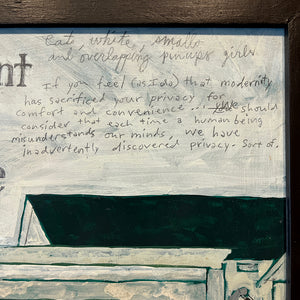 Cat, white, smalls
and overlapping pinups girls
nt
If you feel (as I do) that modernity
has sacrificed your privacy for
comfort and convenience... we should
consider that each time a human being
misunderstands our minds, we have
inadvertently discovered privacy. Sort of.
e